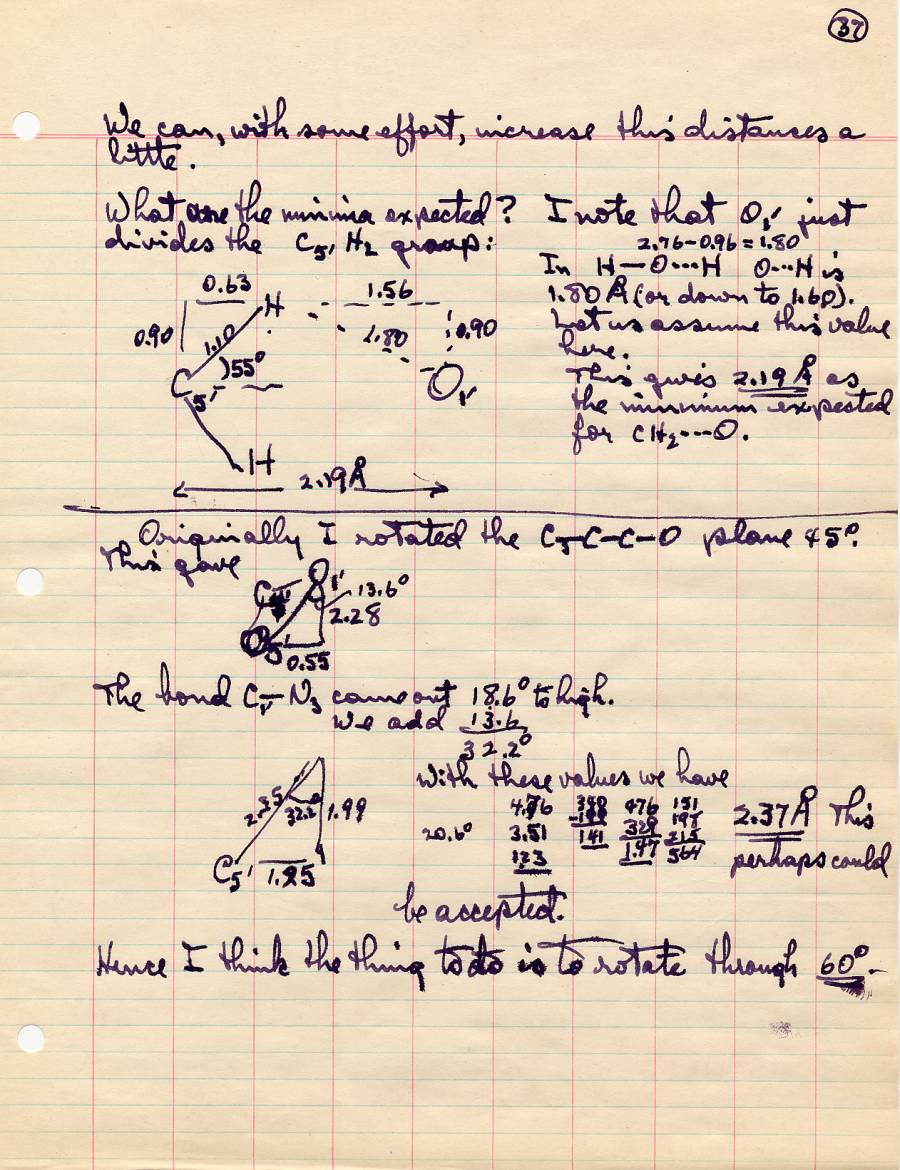 37
We can, with some effort, increase this distances a
little.
What are the minima expected? I note that O1' just
divides the C5' H2 group:
2.76-0.96=1.80
In H—O···H O···H is
1.80 Å (or down to 1.60).
Let us assume this value
here.
This gives 2.19 Å as
the minimum expected
for CH2···O.
0.63
H
1.56
0.90
1.10
1.80
0.90
)55°
C5'
O1'
H
2.19Å
Originally I rotated the C5-C-C-O plane 45°.
This gave
O1'
C4'
13.6°
2.28
5'
0.55
The bond C1'-N3 came out 18.6° to high.
We add 13.6
32.2°
With these values we have
2.35
32.2
1.99
C5'
1.25
20.6°
4.76
3.51
1.23
340
199
141
476
329
1.47
151
197
215
564
2.37Å This
perhaps could
be accepted.
Hence I think the thing to do is to rotate through 60°.